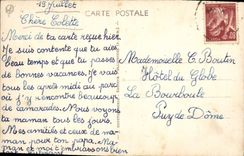 15 Juillet
CARTE POSTALE
Chère Colette
Merci de ta carte reçue hier
Je suis contente que tu aies
beau temps et que tu passes
de bonnes vacances. Je vais
tous les après midi au parc
où j'y rencontre beaucoup
de camarades. Nous voyons
ta maman tous les jours.
Mes amitiés et ceux de ma
maman pour ton papa. Ma
et moi t'embrassons bien
Mademoiselle C. Bouton
Hôtel du Globe
La Bourboule
Puy de Dôme